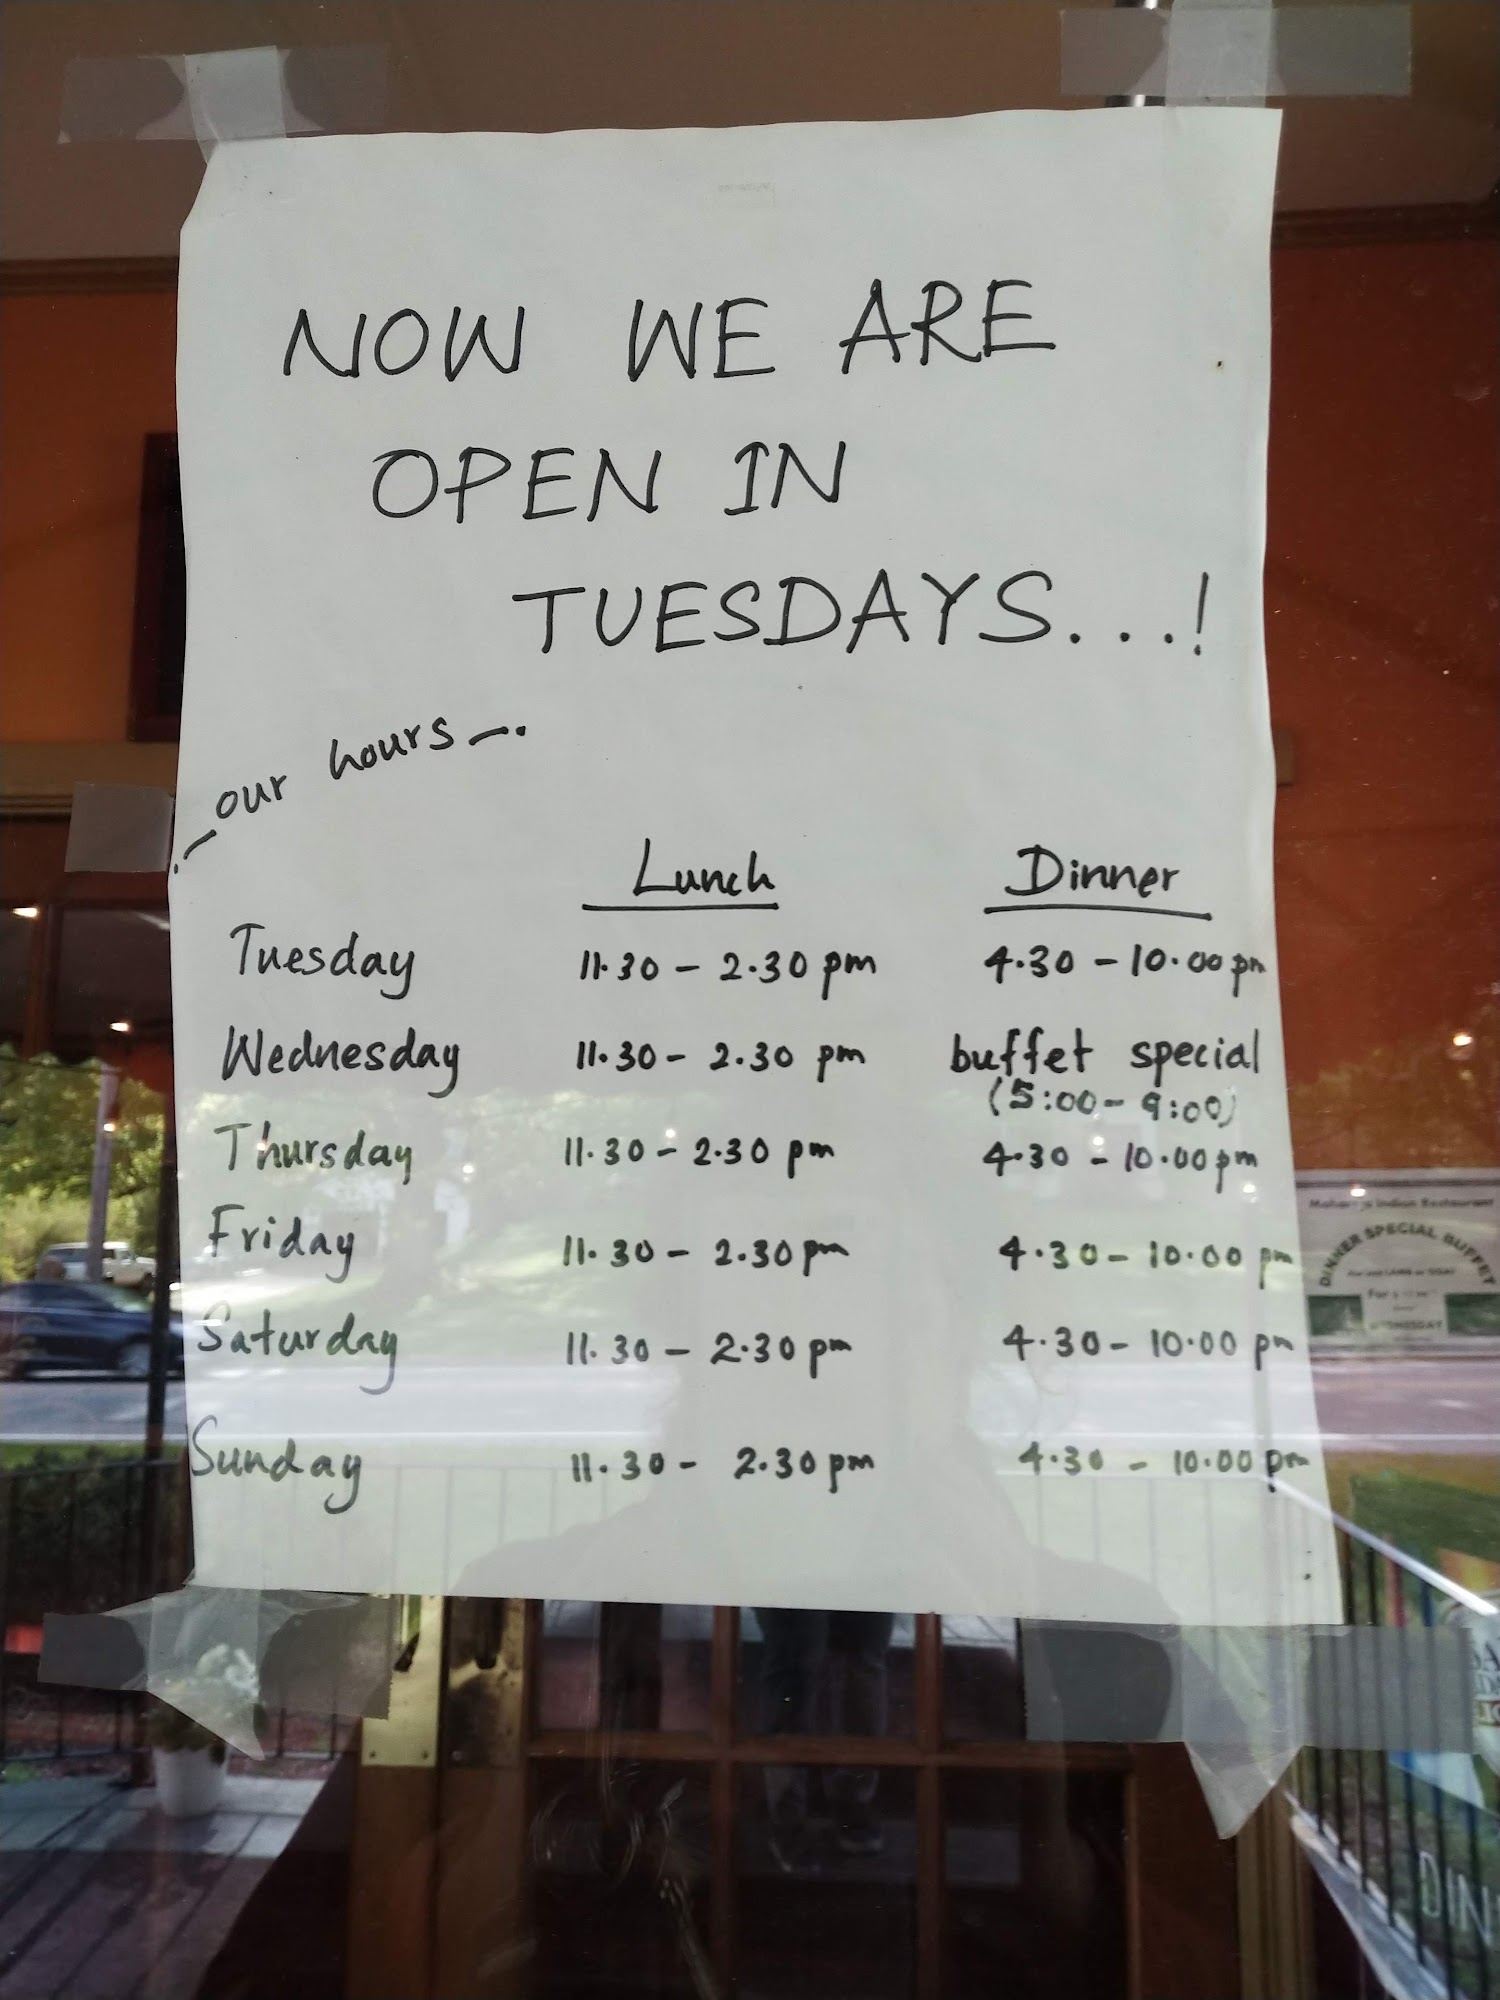 NOW WE ARE
OPEN IN
TUESDAYS...!
our hours
Lunch Dinner
Tuesday 11.30 - 2.30 pm 4.30 - 10.00 pm
Wednesday 11.30 - 2.30 pm buffet special
(5:00 - 9:00)
Thursday 11.30 - 2.30 pm 4.30 - 10.00 pm
Friday 11.30 - 2.30 pm 4.30 - 10.00 pm
Saturday 11.30 - 2.30 pm 4.30 - 10.00 pm
Sunday 11.30 - 2.30 pm 4.30 - 10.00 pm
Indian Restaurant
DINNER SPECIAL BUFFET